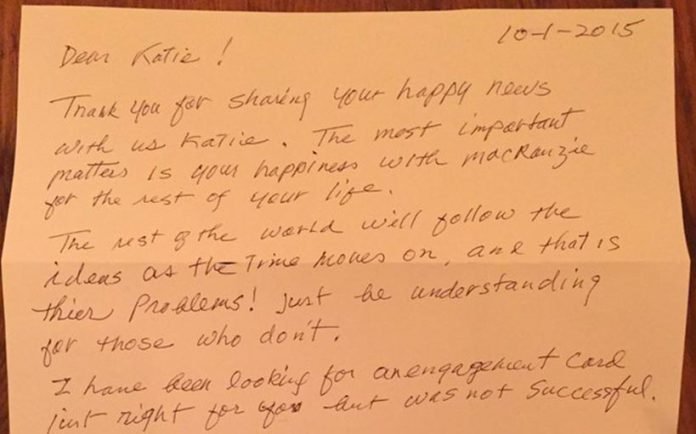 10-1-2015
Dear Katie !
Thank you for sharing your happy news
with us Katie. The most important
matters is your happiness with mackanzie
for the rest of your life.
The rest of the world will follow the
ideas as the Time moves on, and that is
thier problems! just be understanding
for those who don't.
I have been looking for an engagement card
just right for you but was not successful.